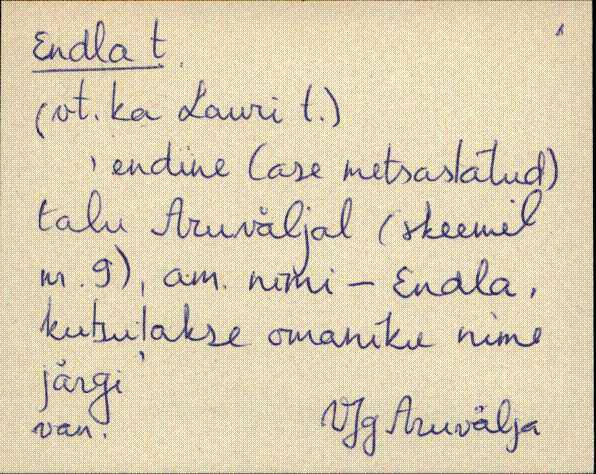 Endla t.
(vt. ka Lauri t.)
, endine (ase metsastatud)
talu Aruväljal (skeemil
nr. 9), am. nimi – Endla,
kutsutakse omaniku nime
järgi
van. VJg Aruvälja